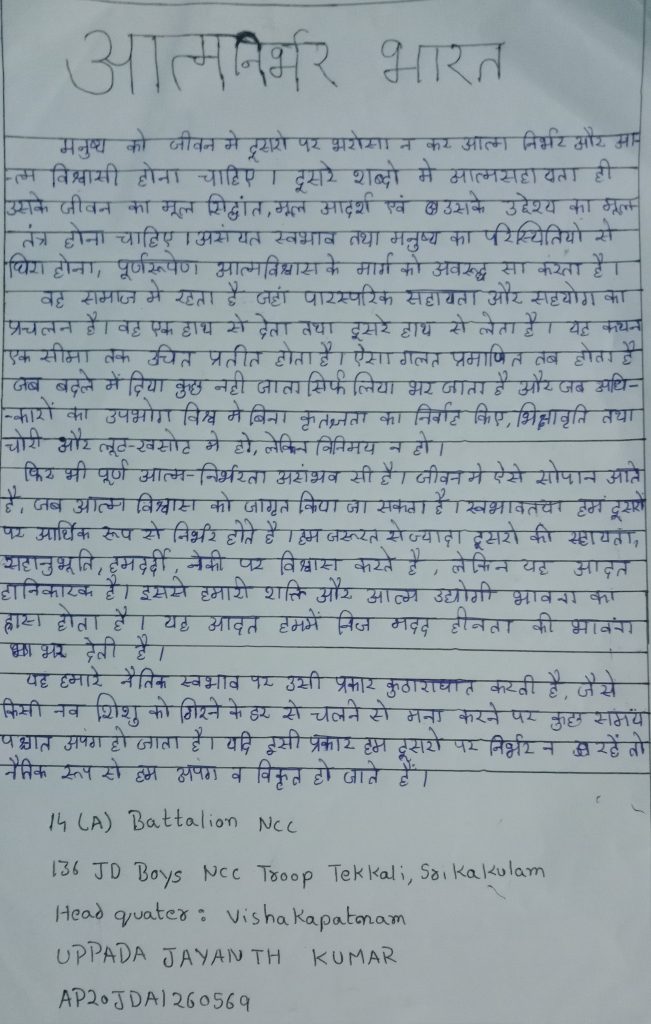 आत्मनिर्भर भारत
मनुष्य को जीवन मे दूसरो पर भरोसा न कर आत्म निर्भर और आ-
-त्म विश्वासी होना चाहिए । दूसरे शब्दो मे आत्मसहायता ही
उसके जीवन का मूल सिद्धांत, मूल आदर्श एवं उसके उद्देश्य का मूल
तंत्र होना चाहिए । असंयत स्वभाव तथा मनुष्य का परिस्थितियो से
घिरा होना, पूर्णरूपेण आत्मविश्वास के मार्ग को अवरूद्ध सा करता है ।
वह समाज मे रहता है जहां पारस्परिक सहायता और सहयोग का
प्रचलन है। वह एक हाथ से देता तथा दूसरे हाथ से लेता है । यह कथन
एक सीमा तक उचित प्रतीत होता है। ऐसा गलत प्रमाणित तब होता है
जब बदले में दिया कुछ नही जाता सिर्फ लिया भर जाता है और जब अधि-
-कारों का उपभोग विश्व मे बिना कृतज्ञता का निर्वाह किए, भिक्षावृति तथा
चोरी और लूट-खसोट मे हो, लेकिन विनिमय न हो ।
फिर भी पूर्ण आत्म-निर्भरता असंभव सी है। जीवन मे ऐसे सोपान आते
है, जब आत्म विश्वास को जागृत किया जा सकता है । स्वभावतया हम दूसरो
पर आर्थिक रूप से निर्भर होते है । हम जरूरत से ज्यादा दूसरो की सहायता,
सहानुभूति, हमदर्दी, नेकी पर विश्वास करते है , लेकिन यह आदत
हानिकारक है। इससे हमारी शक्ति और आत्म उद्योगी भावना का
ह्रास होता है । यह आदत हममें निज मदद हीनता की भावना
भर देती है ।
यह हमारे नैतिक स्वभाव पर उसी प्रकार कुठाराघात करती है, जैसे
किसी नव शिशु को गिरने के डर से चलने से मना करने पर कुछ समय
पश्चात अपंग हो जाता है। यदि इसी प्रकार हम दूसरो पर निर्भर न रहें तो
नैतिक रूप से हम अपंग व विकृत हो जाते हैं ।
14 (A) Battalion NCC
136 JD Boys NCC Troop Tekkali, Srikakulam
Head quater : Vishakapatnam
UPPADA JAYANTH KUMAR
AP20JDA1260569